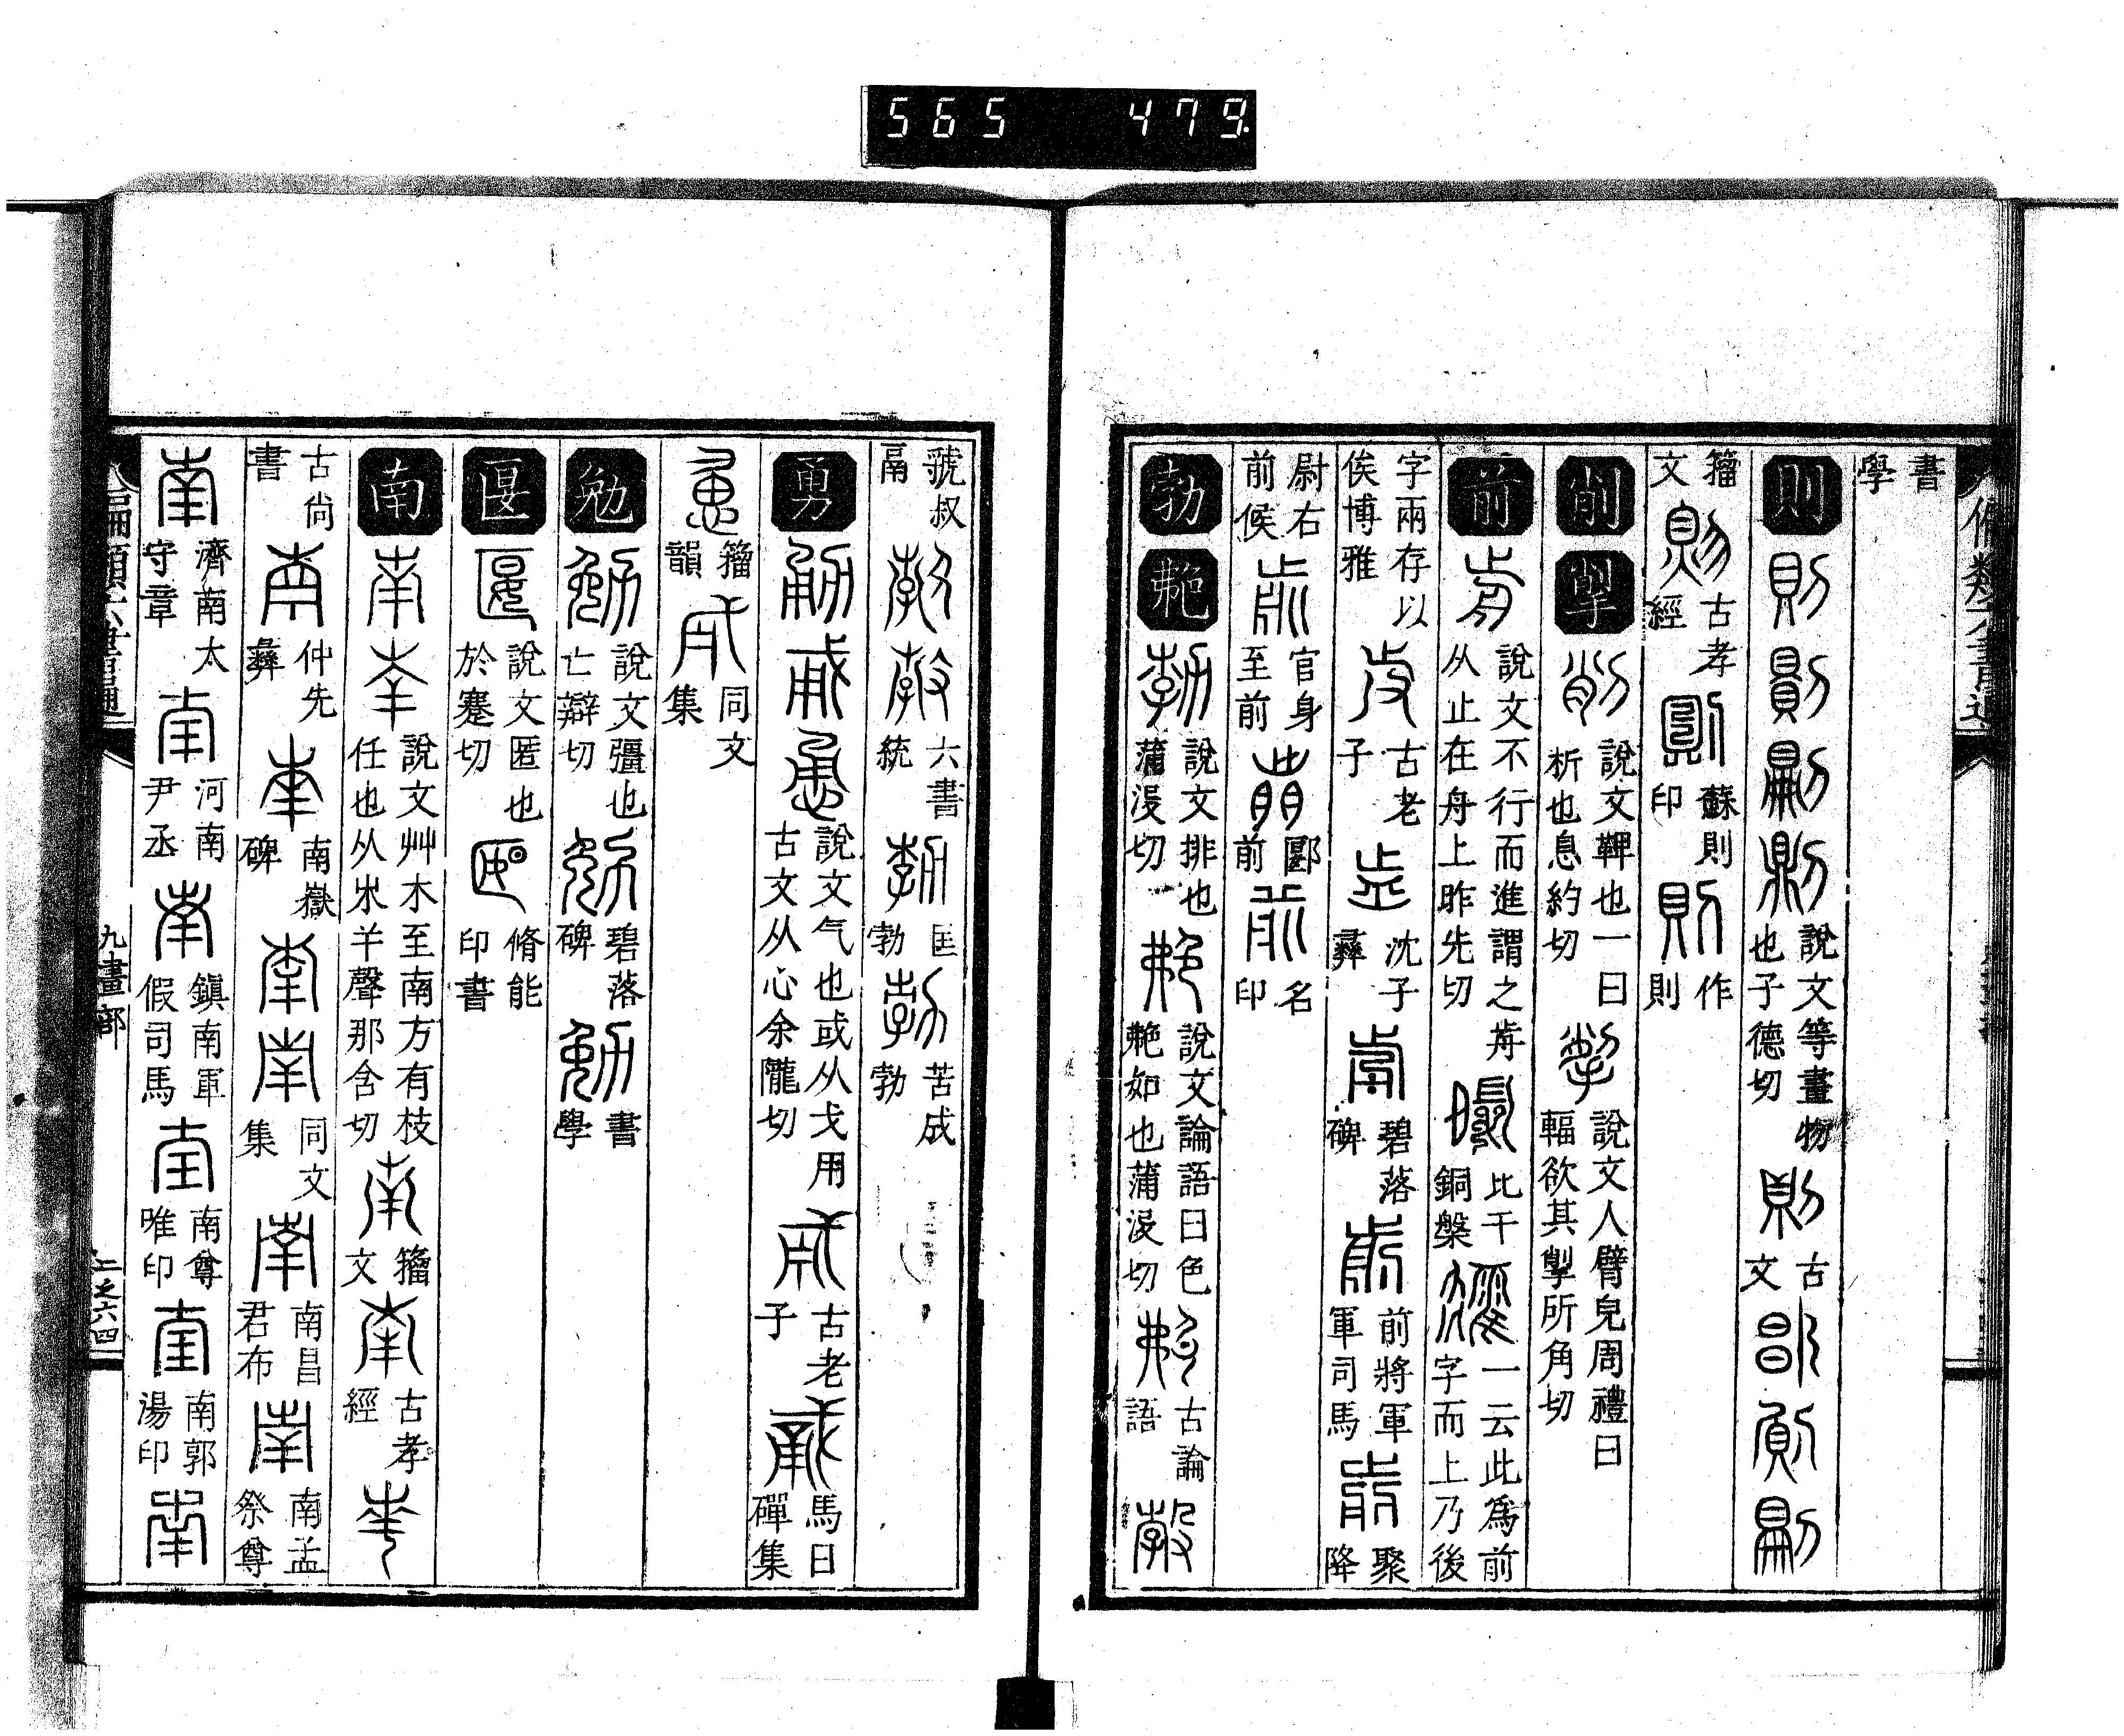 565 479.
書學
則 說文等畫物也子德切 古文
籀文 古孝經 蘇則印 作則
削 㓮 說文鞞也一曰析也息約切 說文人臂皃周禮曰輻欲其掣所角切
前 說文不行而進謂之歬从止在舟上昨先切 比干銅槃 一云此爲前字而上乃後
字兩存以俟博雅 古老子 沈子彝 碧落碑 前將軍軍司馬 聚降
尉右前候 官身至前 郾前 名印
勃 艴 說文排也蒲沒切 說文論語曰色艴如也蒲沒切 古論語
虢叔鬲 六書統 匡勃 苦成勃
勇 說文气也或从戈用古文从心余隴切 古老子 馬日磾集
籀韻 同文集
勉 說文彊也亡辯切 碧落碑 書學
匽 說文匿也於蹇切 脩能印書
南 說文艸木至南方有枝任也从𣎵𢆉聲那含切 籀文 古孝經
古尙書 仲先彝 南嶽碑 同文集 南昌君布 南孟祭尊
濟南太守章 河南尹丞 鎭南軍假司馬 南尊唯印 南郭湯印
九畫部 二之六四